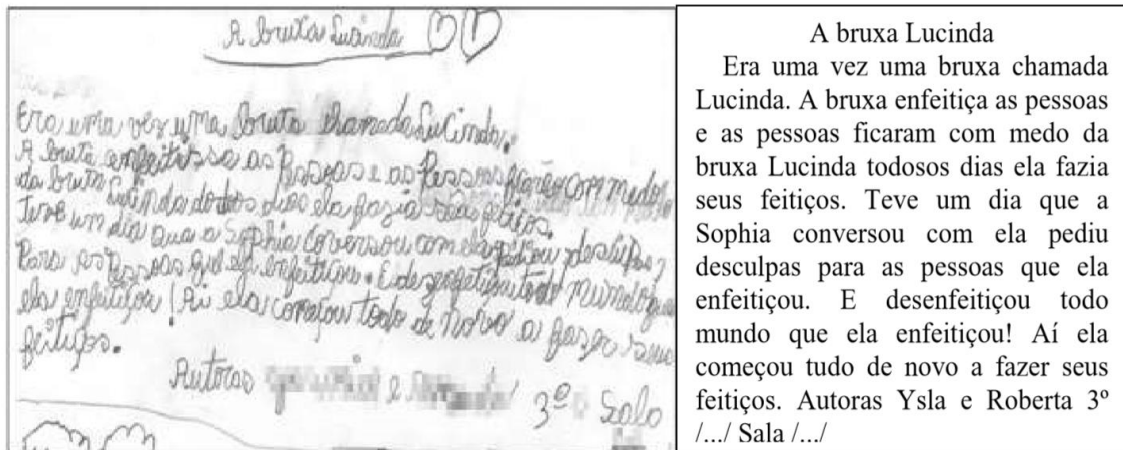 A bruxa Lucinda
Era uma vez uma bruxa chamada Lucinda.
A bruxa as Pessoas e as Pessoas com medo
da bruxa Lucinda dias ela seus feitiços.
Teve um dia a Sophia coversou com ela
Para as Pessoas enfeitiçou. E todo mundo que
ela enfeitiçou! Ai ela começou todo de novo a seus
feitiços.
Autoras e 3º Sala
A bruxa Lucinda
Era uma vez uma bruxa chamada
Lucinda. A bruxa enfeitiça as pessoas
e as pessoas ficaram com medo da
bruxa Lucinda todosos dias ela fazia
seus feitiços. Teve um dia que a
Sophia conversou com ela pediu
desculpas para as pessoas que ela
enfeitiçou. E desenfeitiçou todo
mundo que ela enfeitiçou! Aí ela
começou tudo de novo a fazer seus
feitiços. Autoras Ysla e Roberta 3º
/.../ Sala /.../